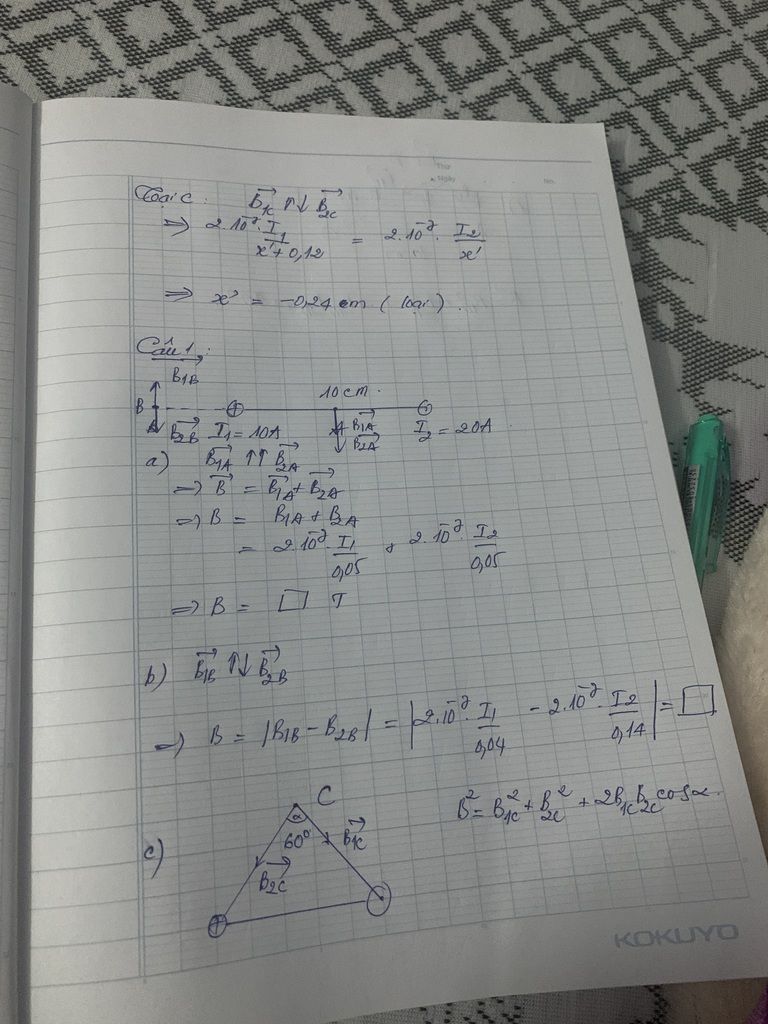 Thứ
Ngày
No.
Tại C : B₁c ↑↓ B₂c
⇒ 2.10⁻⁷. I₁/(x'+0,12) = 2.10⁻⁷. I₂/x'
⇒ x' = -0,24 cm (loại).
Câu 1:
B₁B
10 cm.
B
B₂B I₁ = 10A B₁A B₂A I₂ = 20A
a) B₁A ↑↑ B₂A
⇒ B = B₁A + B₂A
⇒ B = B₁A + B₂A
= 2.10⁻⁷. I₁/0,05 + 2.10⁻⁷. I₂/0,05
⇒ B = □ T
b) B₁B ↑↓ B₂B
⇒ B = |B₁B - B₂B| = |2.10⁻⁷. I₁/0,04 - 2.10⁻⁷. I₂/0,14| = □
B² = B₁c² + B₂c² + 2B₁cB₂c cosα.
c) C
α
60°
B₁c
B₂c
KOKUYO